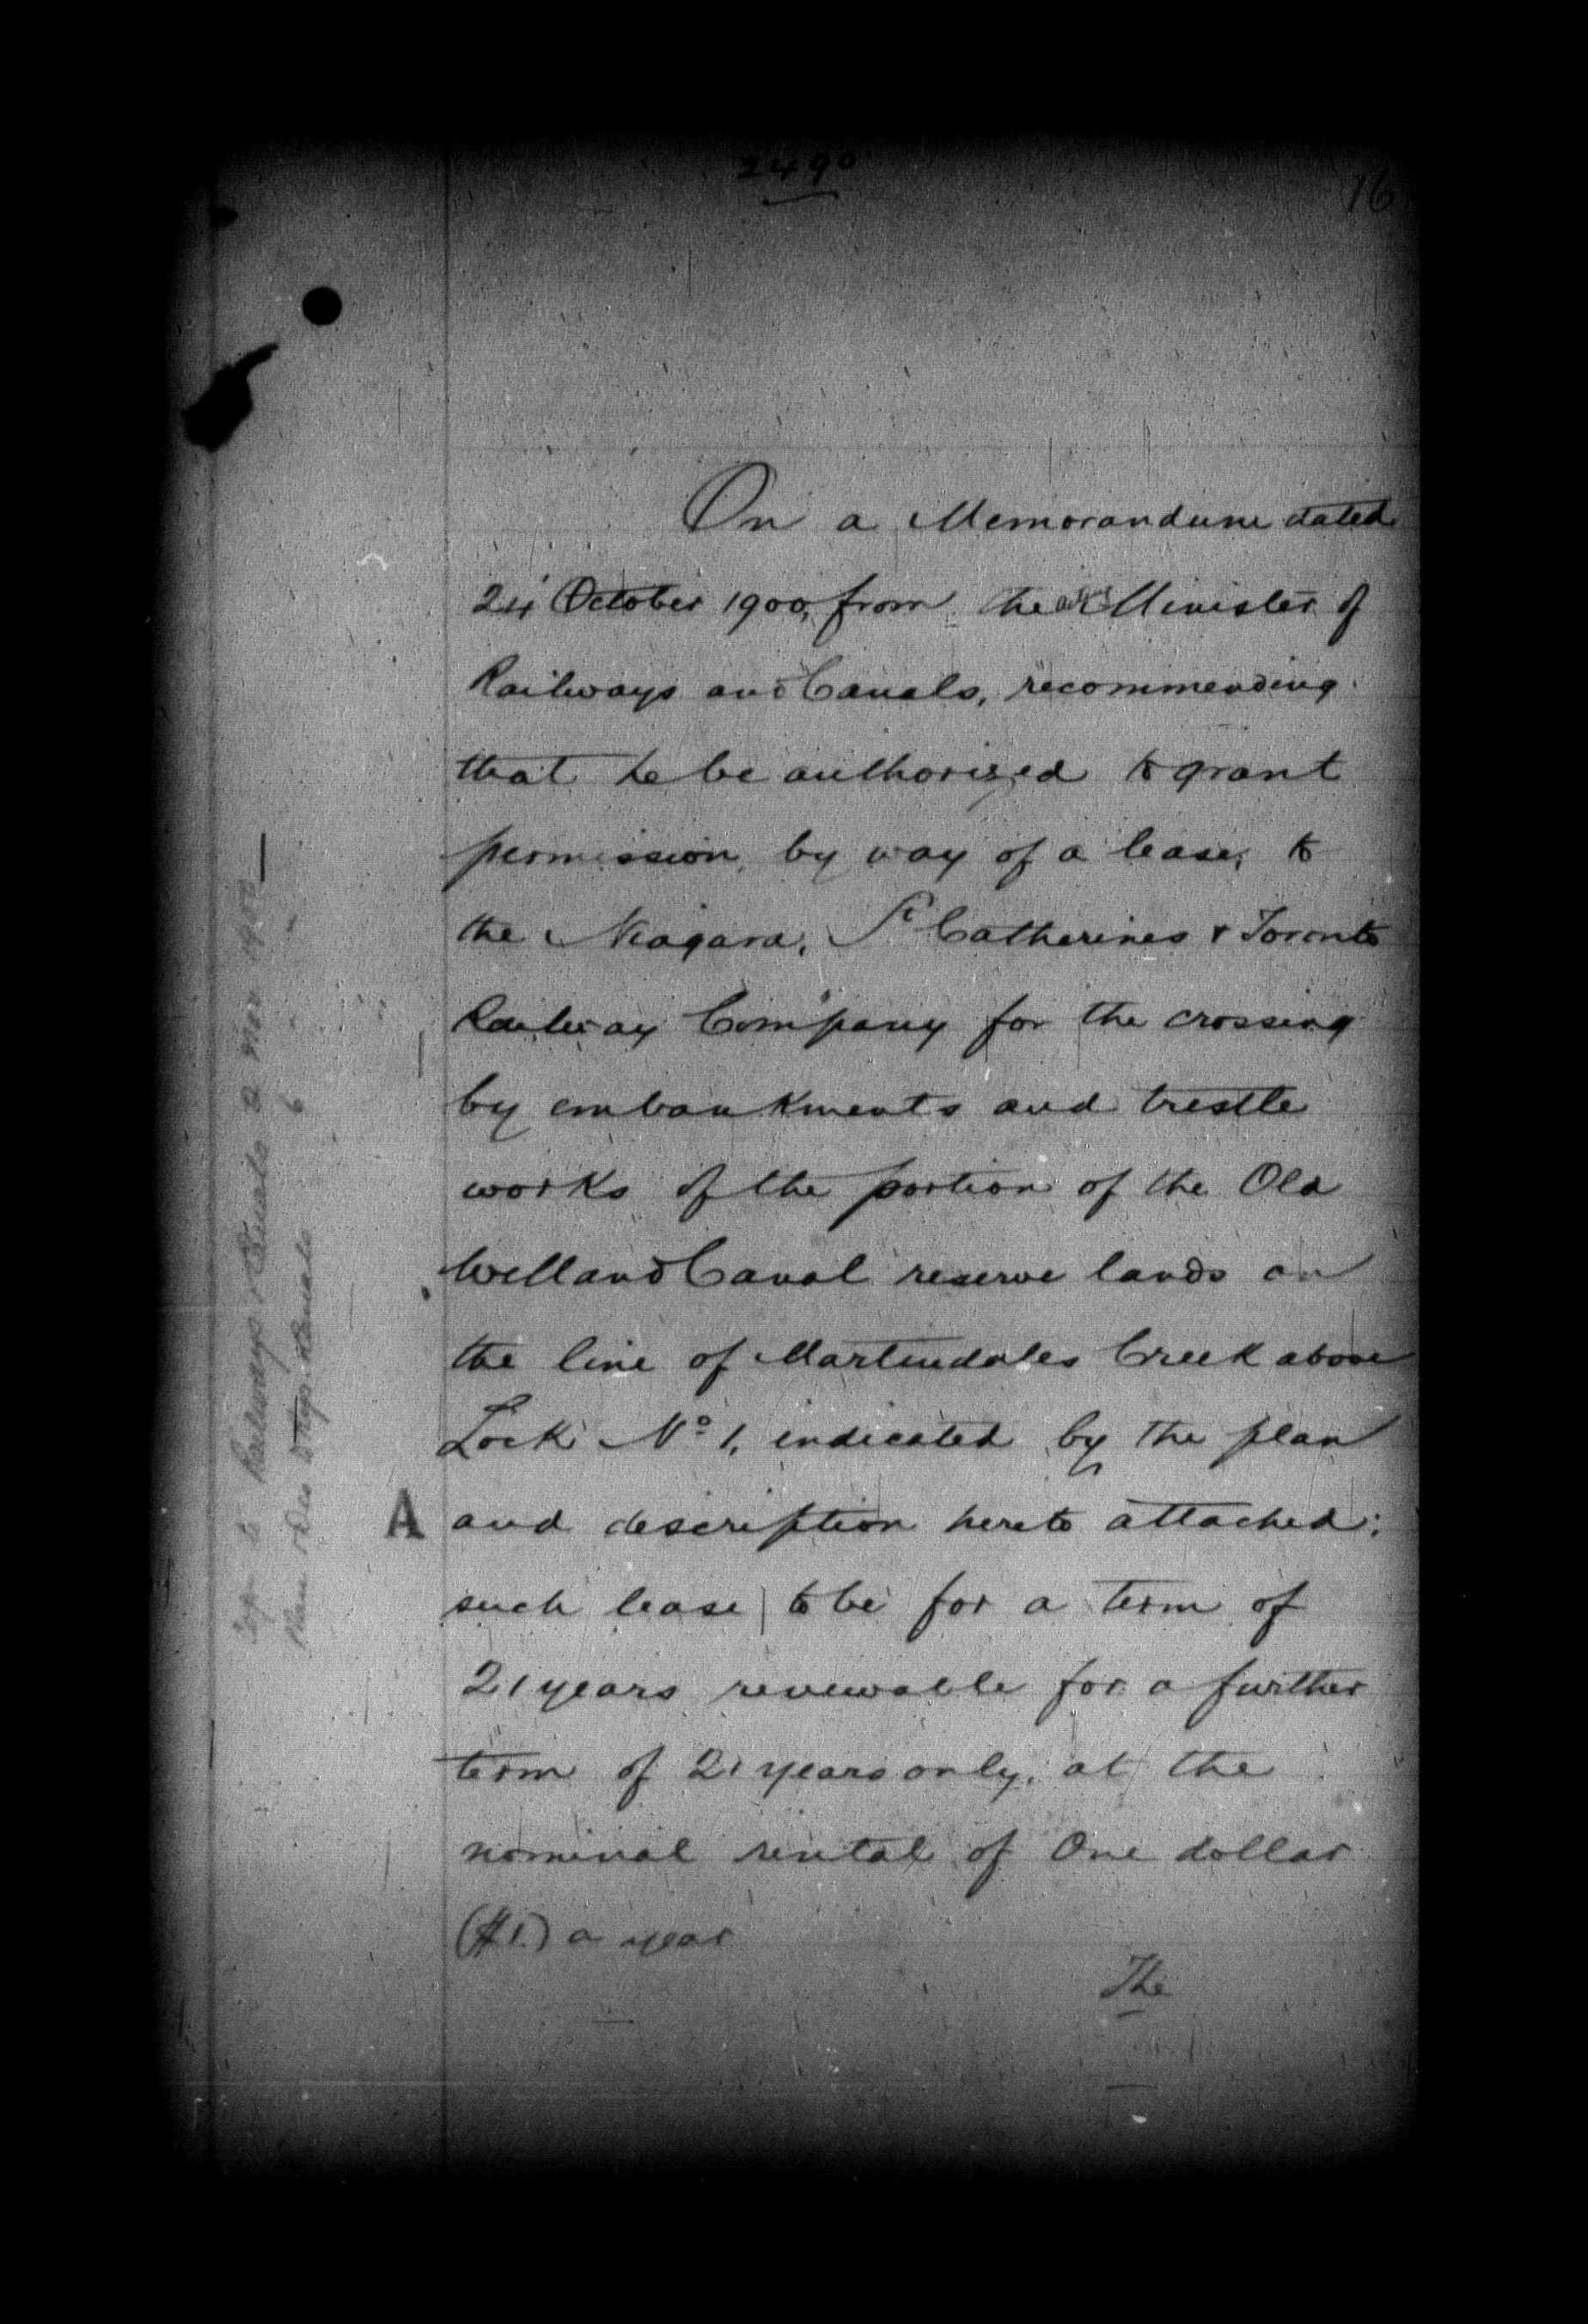 2490
16
On a Memorandum dated
24 October 1900, from the actg Minister of
Railways and Canals, recommending
that he be authorized to grant
permission, by way of a lease, to
the Niagara, St Catherines & Toronto
Railway Company for the crossing
by embankments and trestle
works of the portion of the Old
Welland Canal reserve lands on
the line of Martindales Creek above
Lock No 1, indicated by the plan
A and description hereto attached;
such lease to be for a term of
21 years renewable for a further
term of 21 years only, at the
nominal rental of One dollar
($1.) a year
The
to Railways & Canals 2 Nov 1900
Plan & Des Dep. R Canals 6 " "